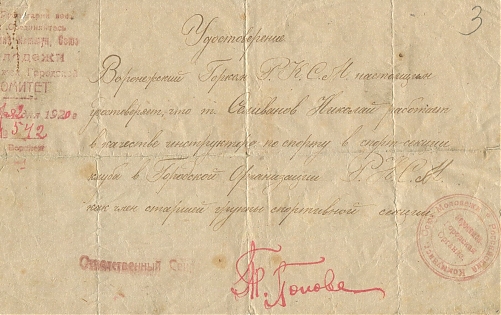 3
Удостоверение
Союз
МОЛОДЕЖИ
Городской
КОМИТЕТ
1920 г
№ 542
Воронеж
Воронежский Горком Р.К.С.М. настоящим
удостоверяет, что т. Селиванов Николай работает
в качестве инструктора по спорту в спорт-секции
клуба в Городской Организации Р.К.С.М.
как член старшей группы спортивной секции.
Ответственный
Т. Попова